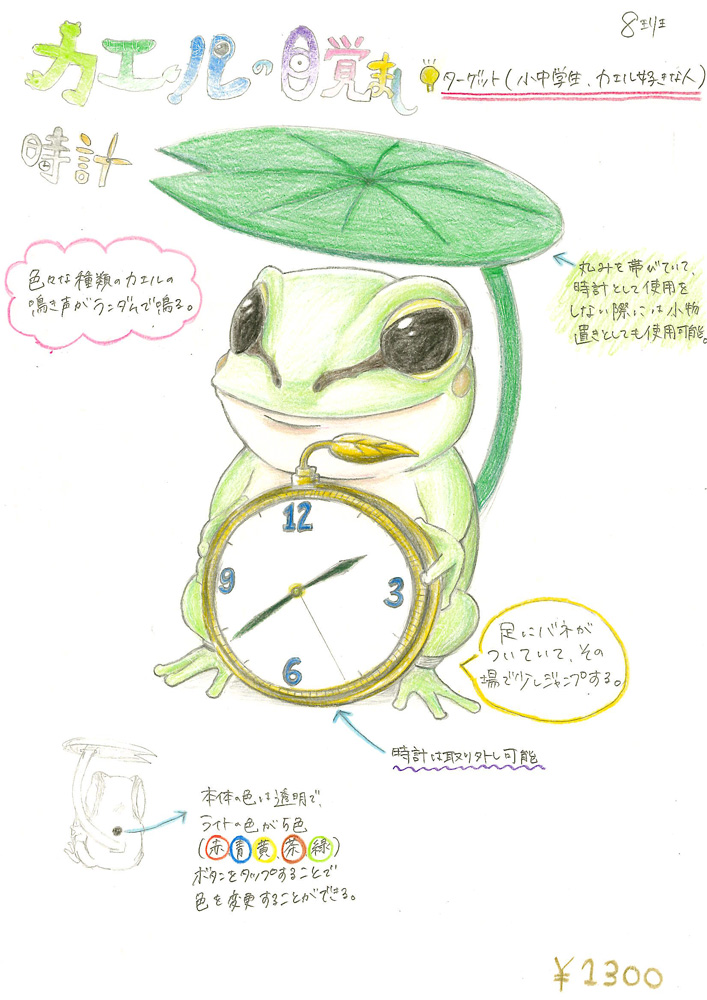 8班
カエルの目覚まし
時計
ターゲット(小中学生、カエル好きな人)
色々な種類のカエルの
鳴き声がランダムで鳴る。
丸みを帯びていて、
時計として使用を
しない際には小物
置きとしても使用可能。
12
9
3
6
足にバネが
ついていて、その
場で少しジャンプする。
時計は取り外し可能
本体の色は透明で、
ライトの色が5色
(赤青黄茶緑)
ボタンをタップすることで
色を変更することができる。
¥1300